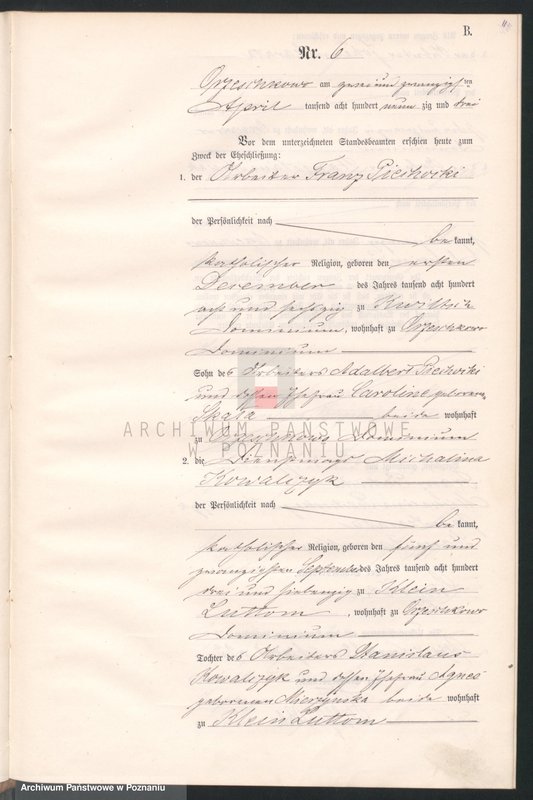 B.
Nr. 6
Orzeschkowo am zwei und zwanzigsten
April tausend acht hundert neun zig und drei
Vor dem unterzeichneten Standesbeamten erschien heute zum
Zweck der Eheschließung:
1. der Arbeiter Franz Piechocki
der Persönlichkeit nach
be kannt,
katholischer Religion, geboren den ersten
Dezember des Jahres tausend acht hundert
acht und sechszig zu Kwiltsch
Dominium, wohnhaft zu Orzeschkowo
Dominium
Sohn des Arbeiters Adalbert Piechocki
und dessen Ehefrau Caroline geborenen
beide wohnhaft
zu Orzeschkowo Dominium
ARCHIWUM PAŃSTWOWE
W POZNANIU
2. die Dienstmagd Michalina
Kowalczyk
der Persönlichkeit nach
be kannt,
katholischer Religion, geboren den fünf und
zwanzigsten September des Jahres tausend acht hundert
drei und siebenzig zu Klein
Luttom, wohnhaft zu Orzeschkowo
Dominium
Tochter des Arbeiters Stanislaus
Kowalczyk und dessen Ehefrau Agnes
geborenen Mierzynska beide wohnhaft
zu Klein Luttom
Archiwum Państwowe w Poznaniu